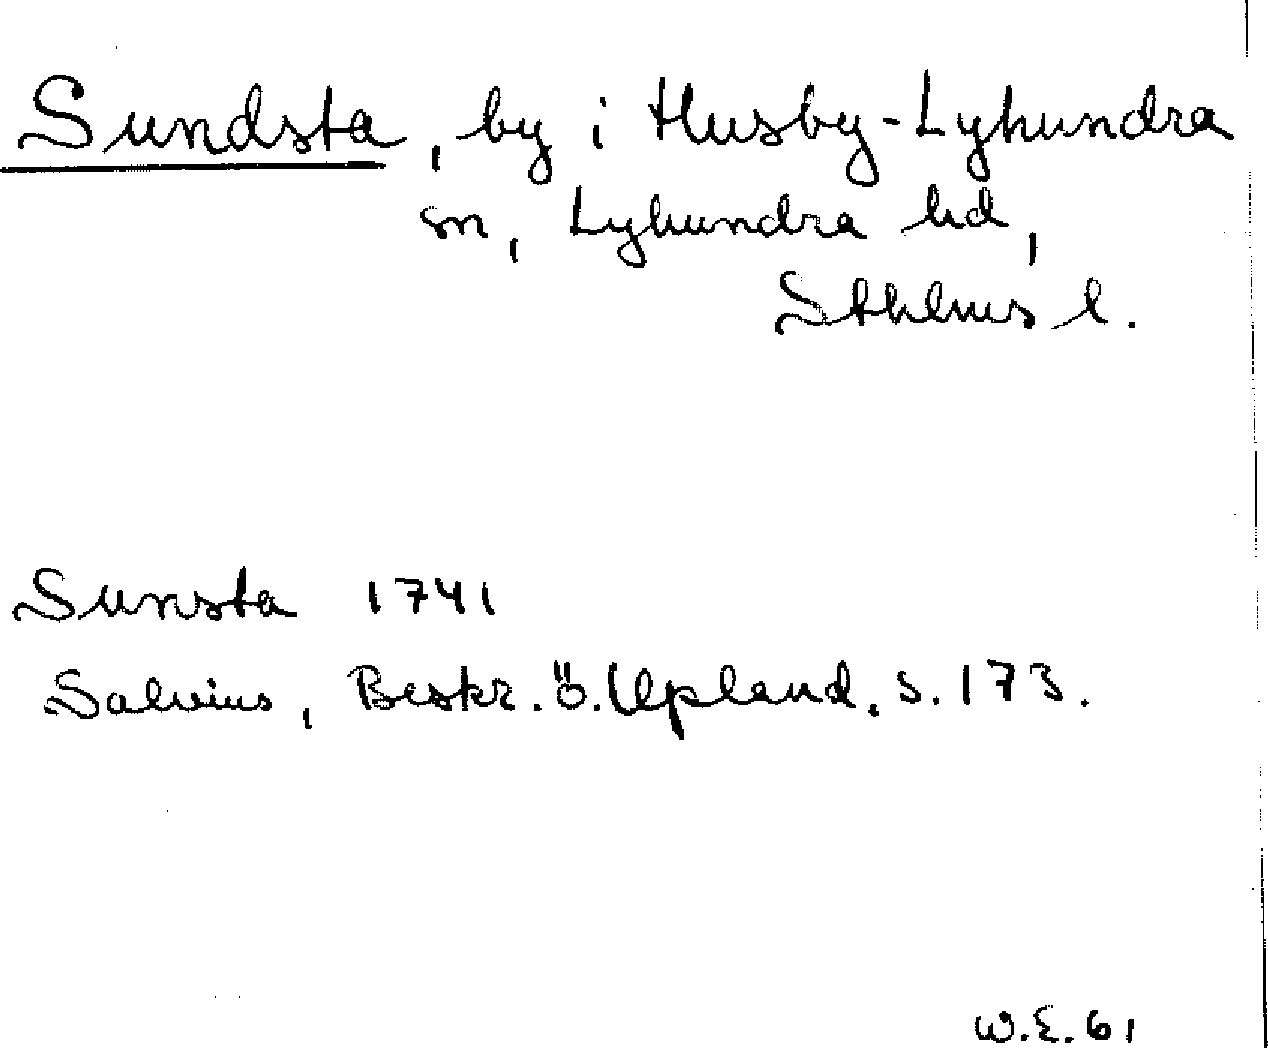 Sundsta, by i Husby-Lyhundra
sn, Lyhundra hd,
Sthlms l.
Sunsta 1741
Salvius, Beskr. ö. Upland. s. 173.
W.E. 61